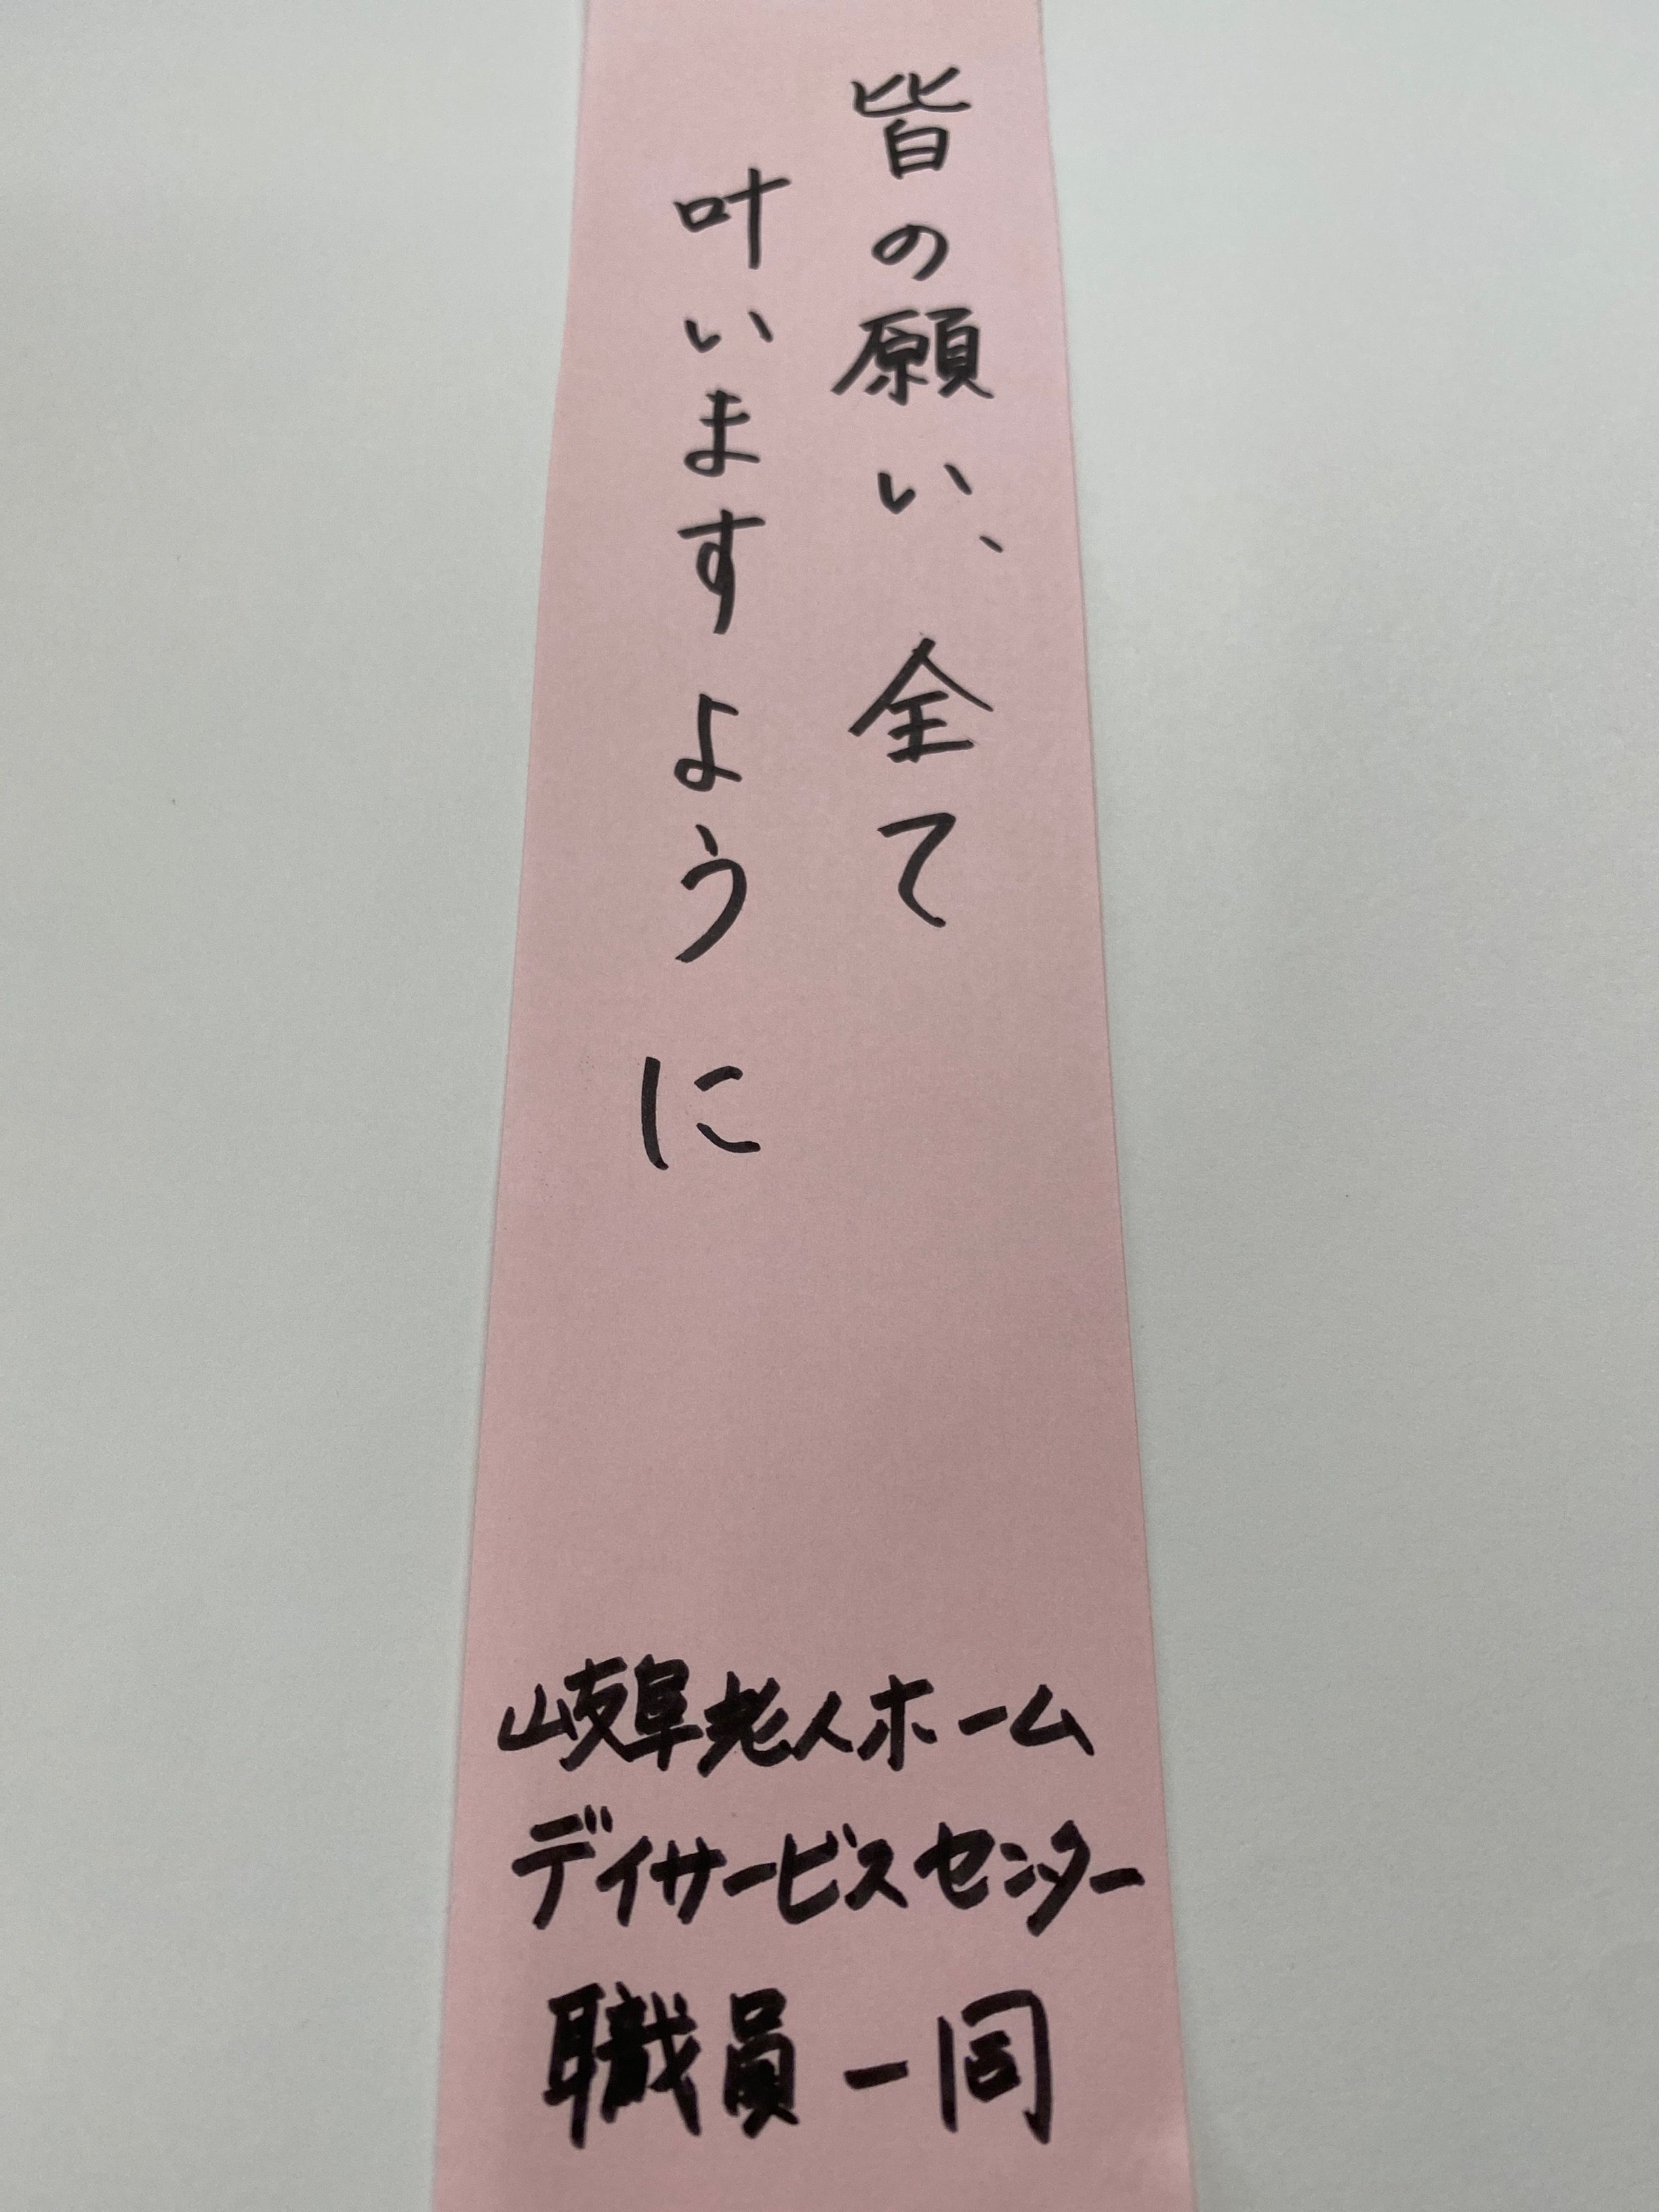 皆の願い、全て
叶いますように
岐阜老人ホーム
デイサービスセンター
職員一同